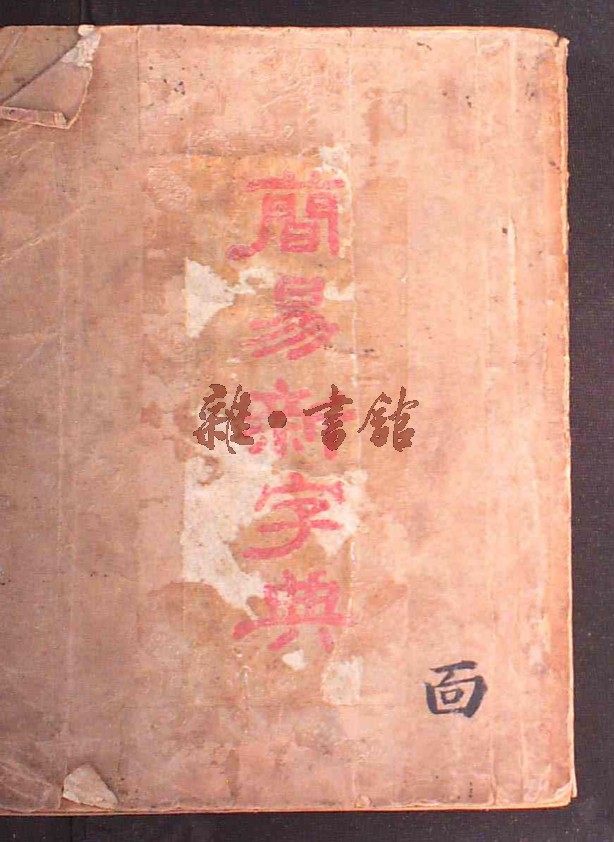 簡易新字典
雜·書館
面